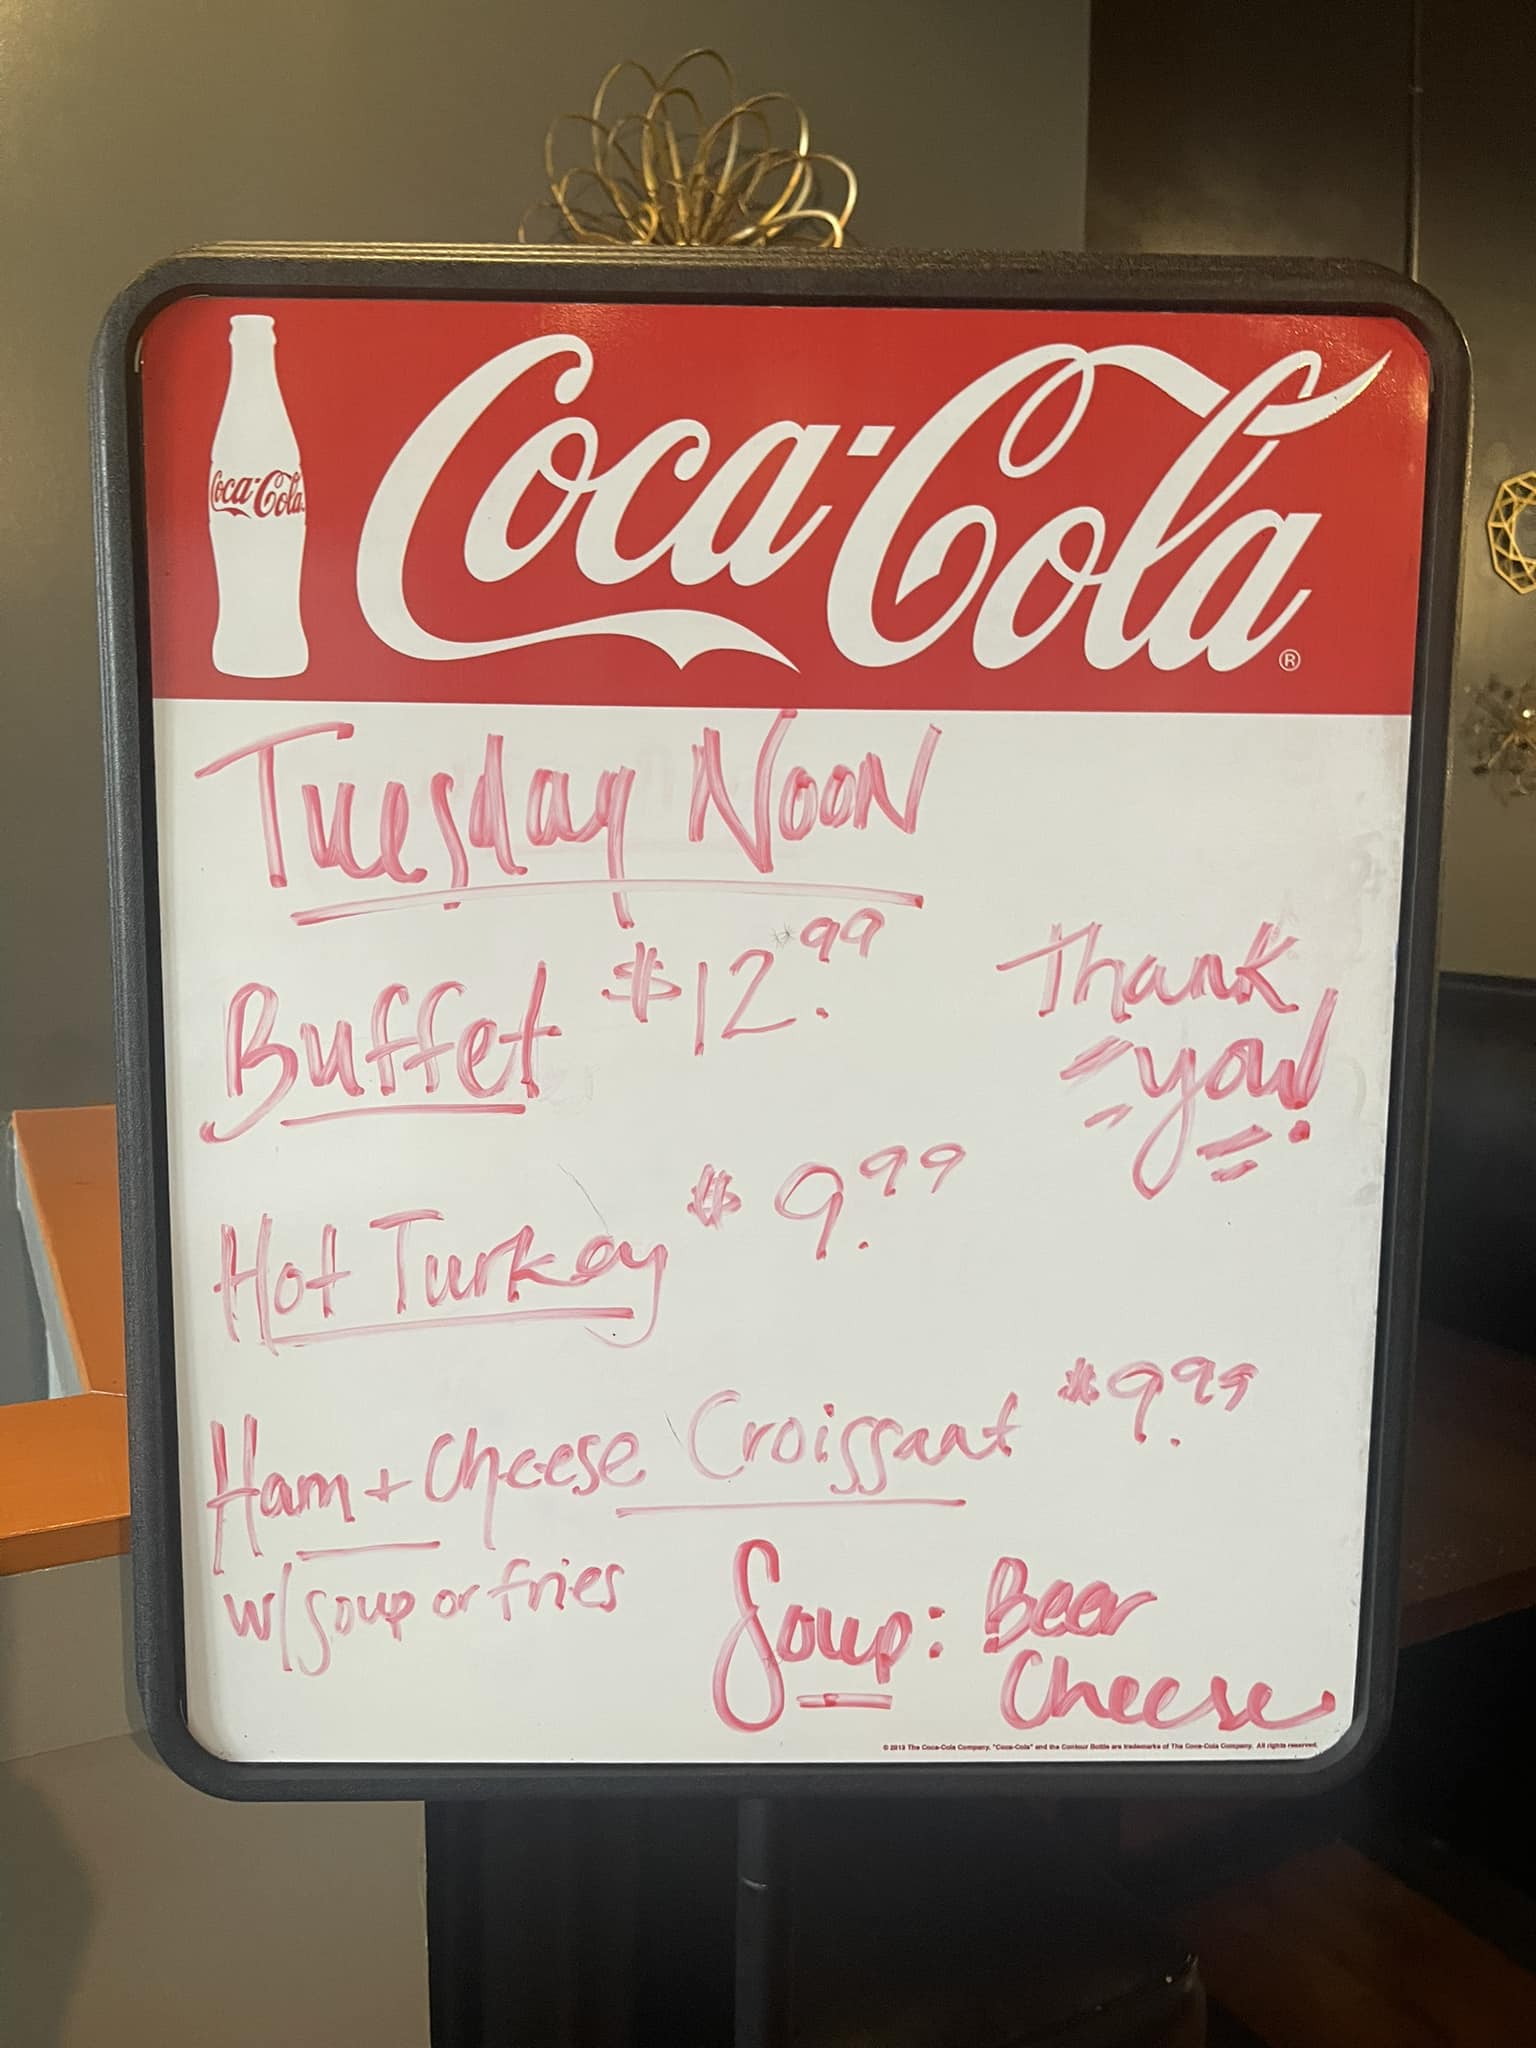 Coca-Cola
Coca-Cola®
Tuesday Noon
Buffet $12.99
Thank
you!
Hot Turkey $9.99
Ham + Cheese Croissant $9.99
w/soup or fries
Soup: Beer
Cheese
© 2013 The Coca-Cola Company. "Coca-Cola" and the Contour Bottle are trademarks of The Coca-Cola Company. All rights reserved.